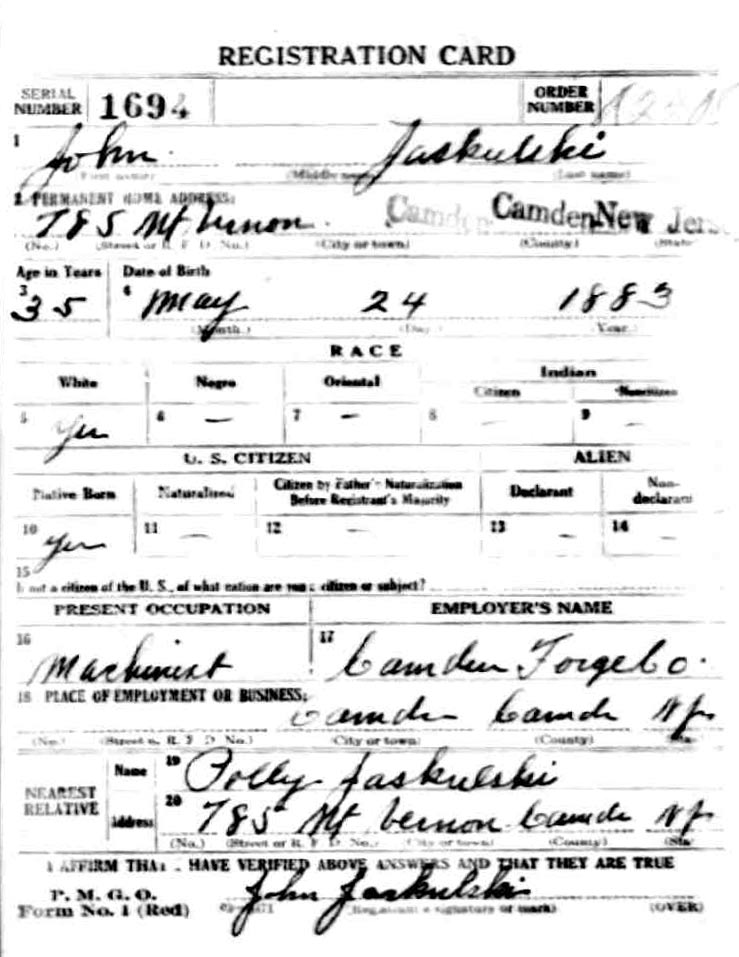 REGISTRATION CARD
SERIAL NUMBER 1694 ORDER NUMBER
1 John Jaskulski
(First name) (Middle name) (Last name)
2 PERMANENT HOME ADDRESS:
785 Mt Vernon. Camden Camden New Jers
(No.) (Street or R. F. D. No.) (City or town) (County) (State)
Age in Years Date of Birth
3 35 4 May 24 1883
(Month.) (Day.) Year.)
RACE
White Negro Oriental Indian
Citizen Noncitizen
5 Yes 6 — 7 — 8 — 9 —
U. S. CITIZEN ALIEN
Native Born Naturalized Citizen by Father's Naturalization Before Registrant's Majority Declarant Non-declarant
10 Yes 11 — 12 — 13 — 14 —
15
If not a citizen of the U. S., of what nation are you a citizen or subject?
PRESENT OCCUPATION EMPLOYER'S NAME
16 Machinist 17 Camden Forge Co.
18 PLACE OF EMPLOYMENT OR BUSINESS:
Camden Camden NJ
(No.) (Street or R. F. D. No.) (City or town) (County) (Sta
NEAREST RELATIVE
Name 19 Polly Jaskulski
Address 20 785 Mt Vernon Camden NJ
(No.) (Street or R. F. D. No.) (City or town) (County) (Sta
I AFFIRM THAT I HAVE VERIFIED ABOVE ANSWERS AND THAT THEY ARE TRUE
P. M. G. O.
Form No. 1 (Red) John Jaskulski
(Registrant's signature or mark) (OVER)